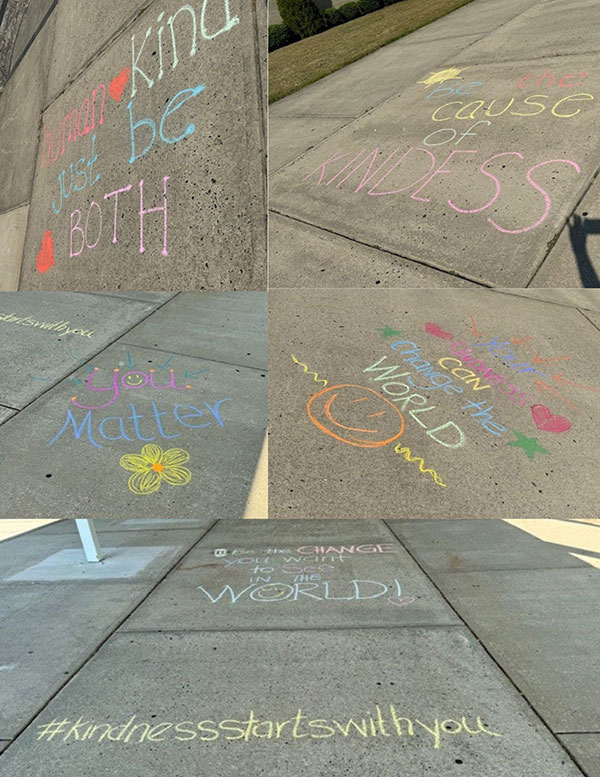 Human kind
just be
BOTH
be the
cause
of
KINDESS
startswithyou
you
Matter
Your
kindness
CAN
change the
WORLD
Be the CHANGE
you want
to see
IN THE
WORLD!
#kindnessstartswithyou